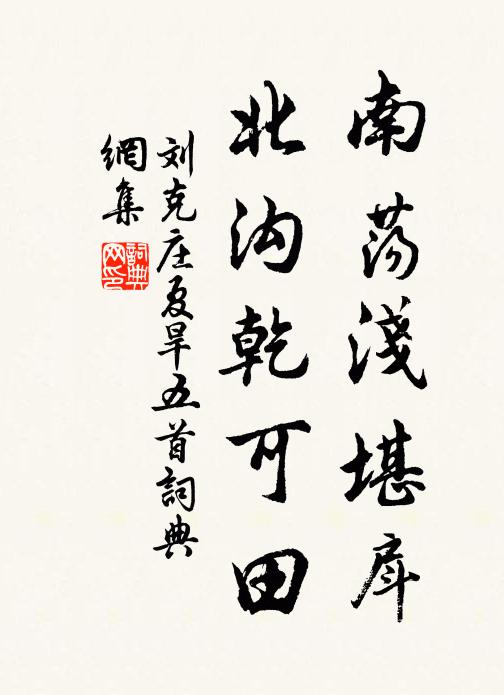 南荡淺堪戽
北沟乾可田
刘克庄夏旱五首詞典
網集
詞典网印